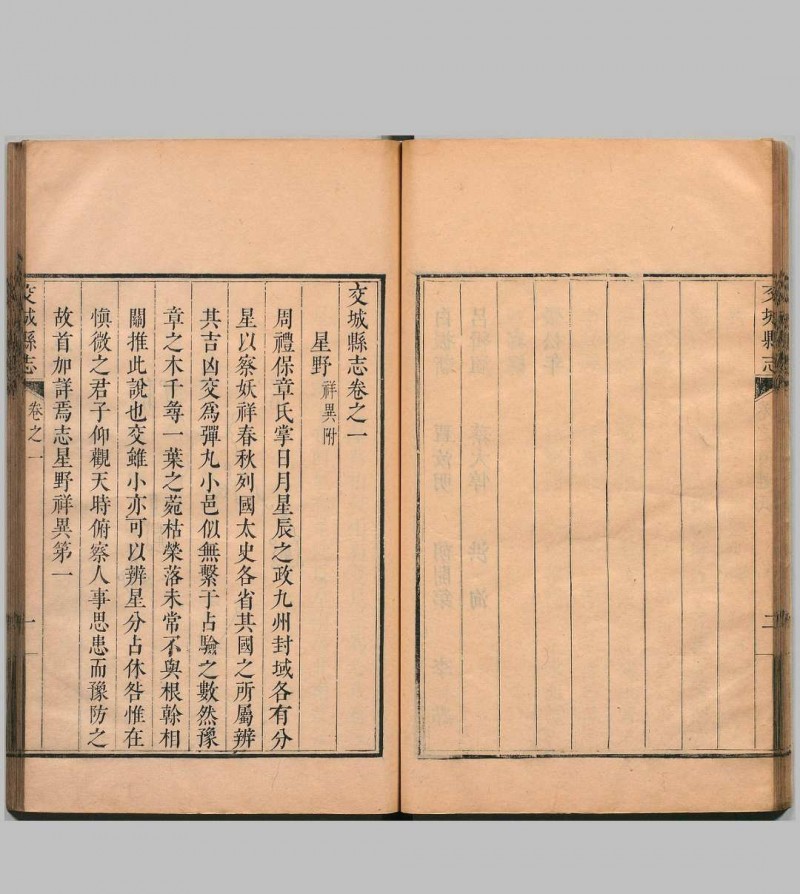 交城縣志
二
交城縣志卷之一
星野祥異附
周禮保章氏掌日月星辰之政九州封域各有分
星以察妖祥春秋列國太史各省其國之所屬辨
其吉凶交爲彈丸小邑似無繫于占驗之數然豫
章之木千尋一葉之菀枯榮落未常不與根榦相
關推此說也交雖小亦可以辨星分占休咎惟在
愼微之君子仰觀天時俯察人事思患而豫防之
故首加詳焉志星野祥異第一
交城縣志
卷之一
一